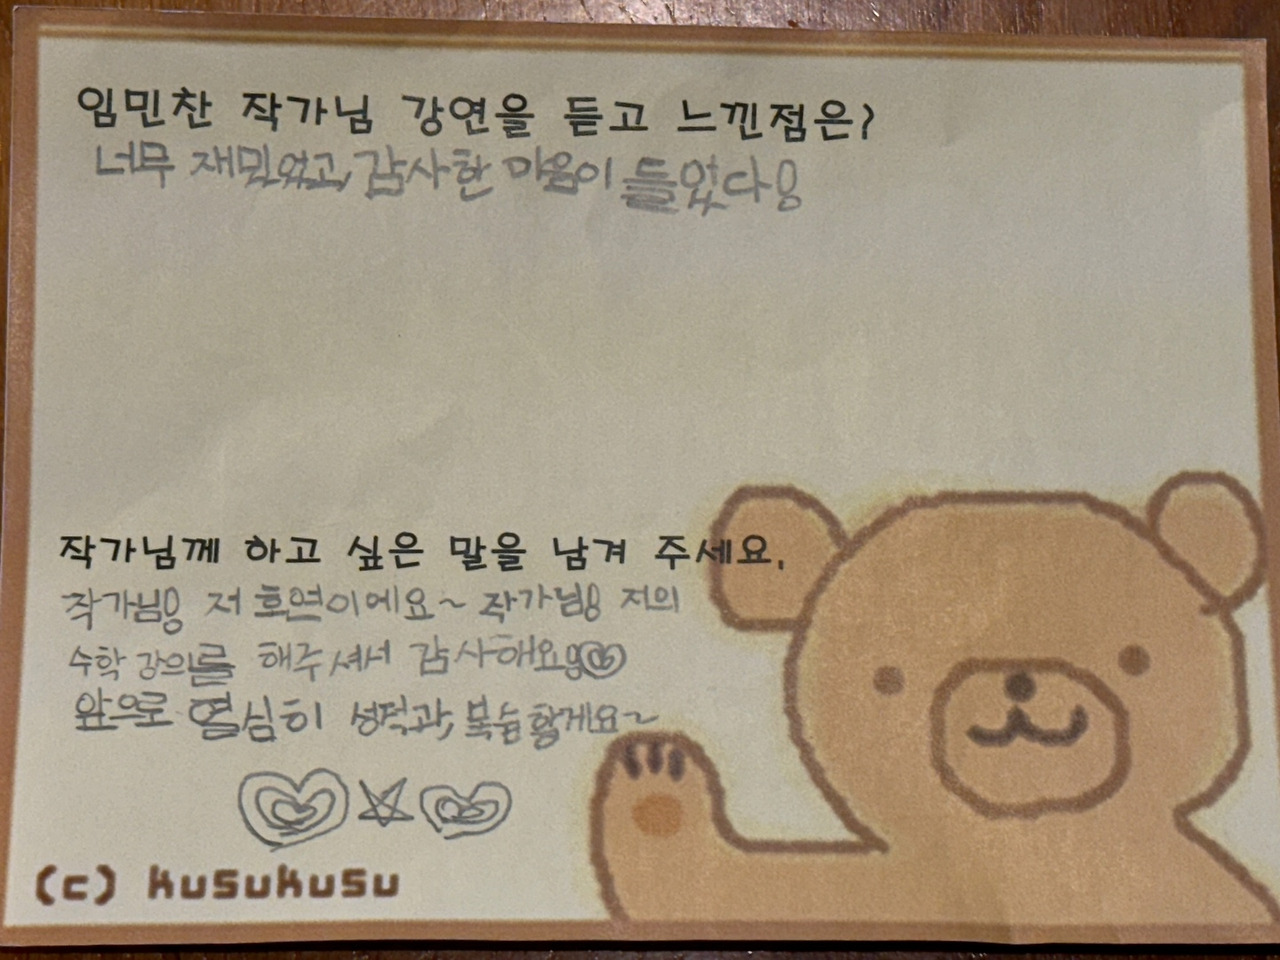 임민찬 작가님 강연을 듣고 느낀점은?
너무 재밌었고, 감사한 마음이 들었다!
작가님께 하고 싶은 말을 남겨 주세요.
작가님! 저 호연이에요~ 작가님! 저의
수학 강의를 해주셔서 감사해요!
앞으로 열심히 성적과, 복습할게요~
(c) kusukusu